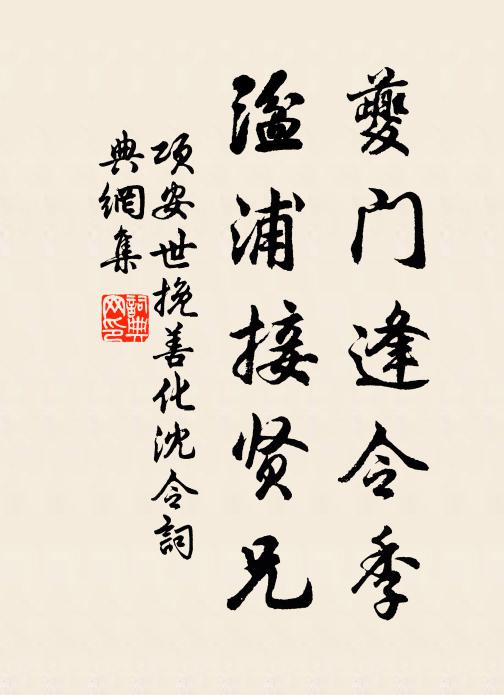 夔门逢令季
湓浦接贤兄
项安世挽善化沈令詞
典網集
詞典网印